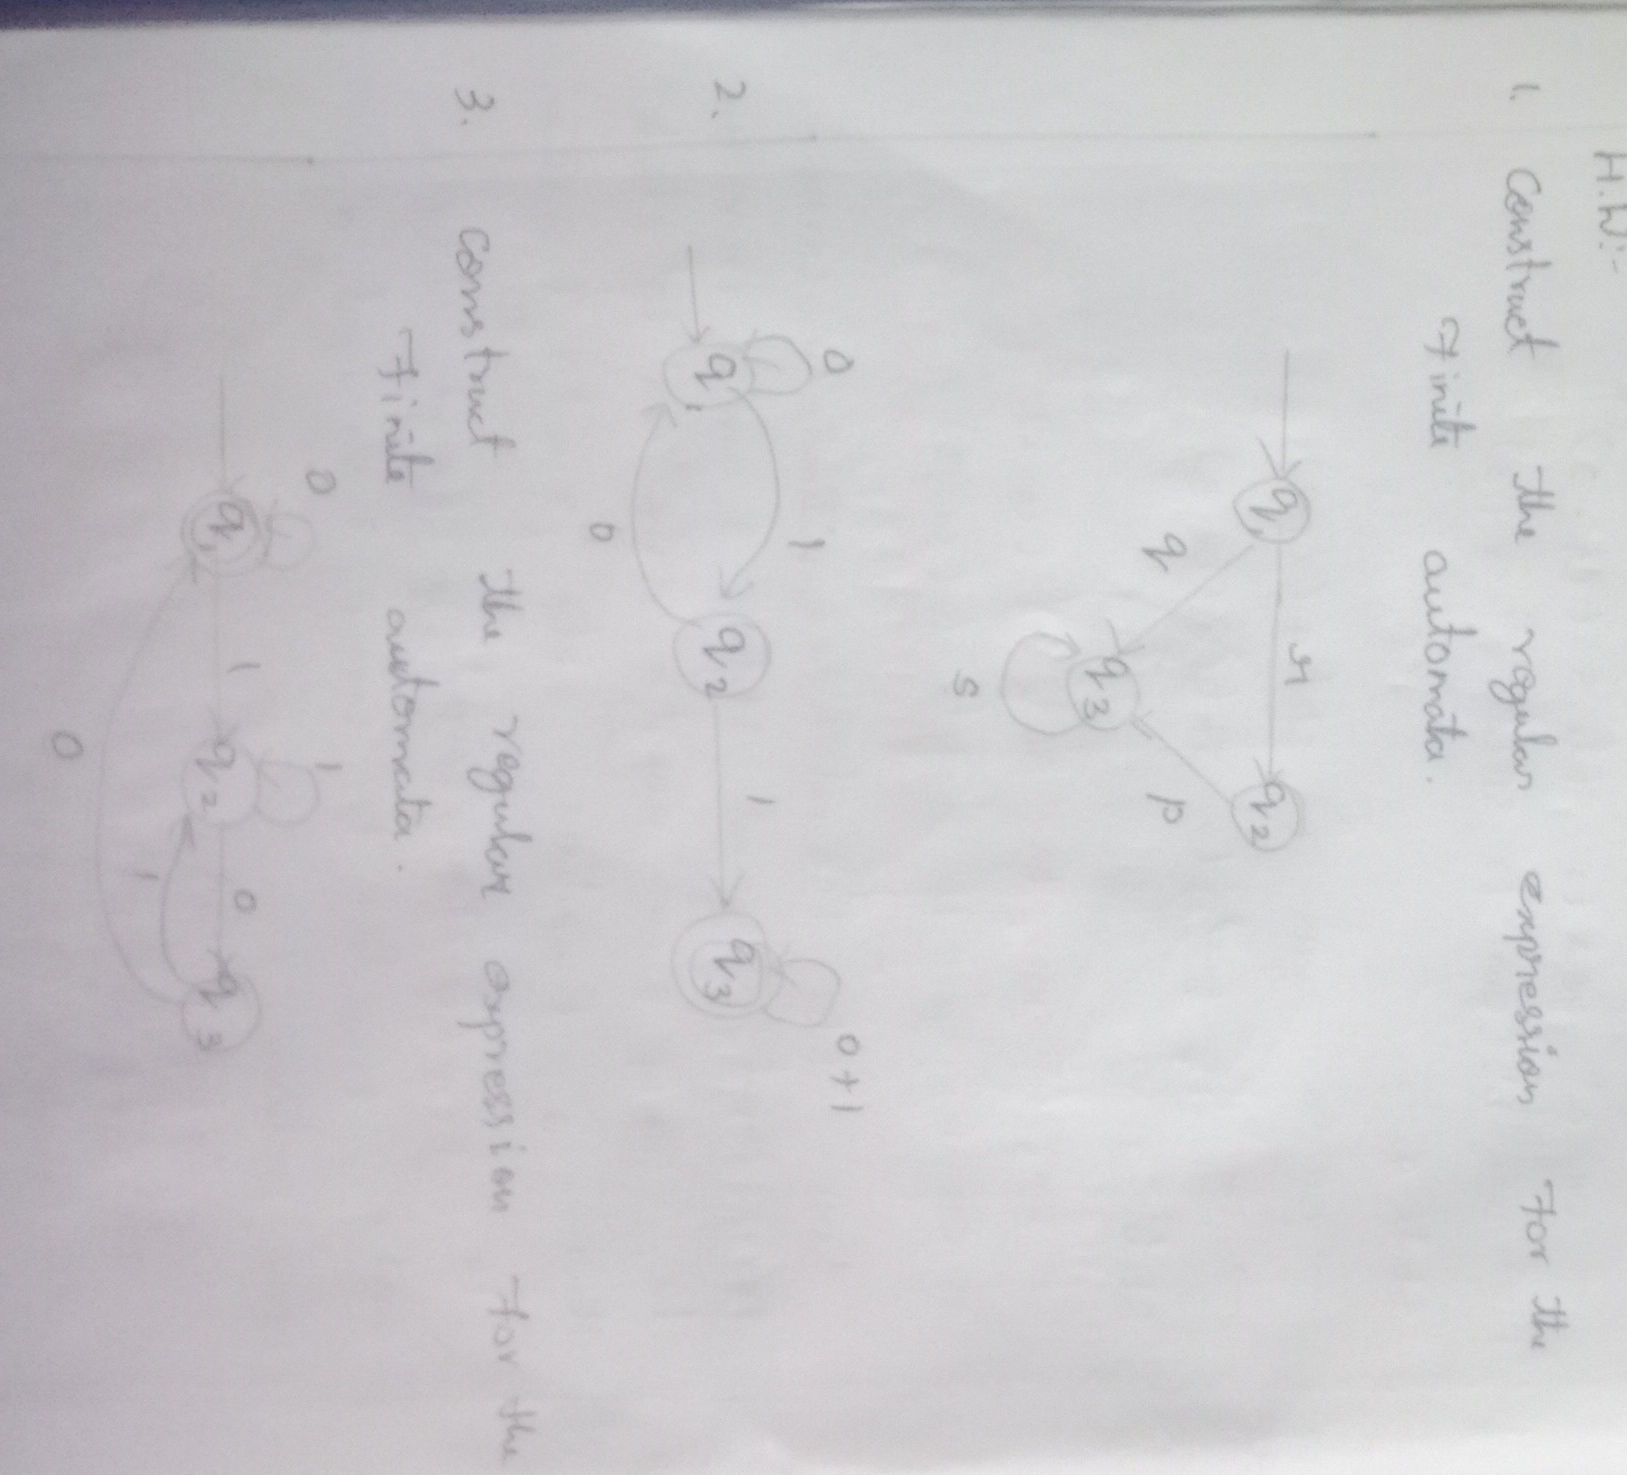 H.W:-
1. Construct the regular expression for the
Finite automata.
q1 r q2
q p
q3
s
2.
0 1 0+1
q1 q2 1 q3
0
3. Construct the regular expression for the
Finite automata.
0 1
q1 1 q2 0 q3
1
0